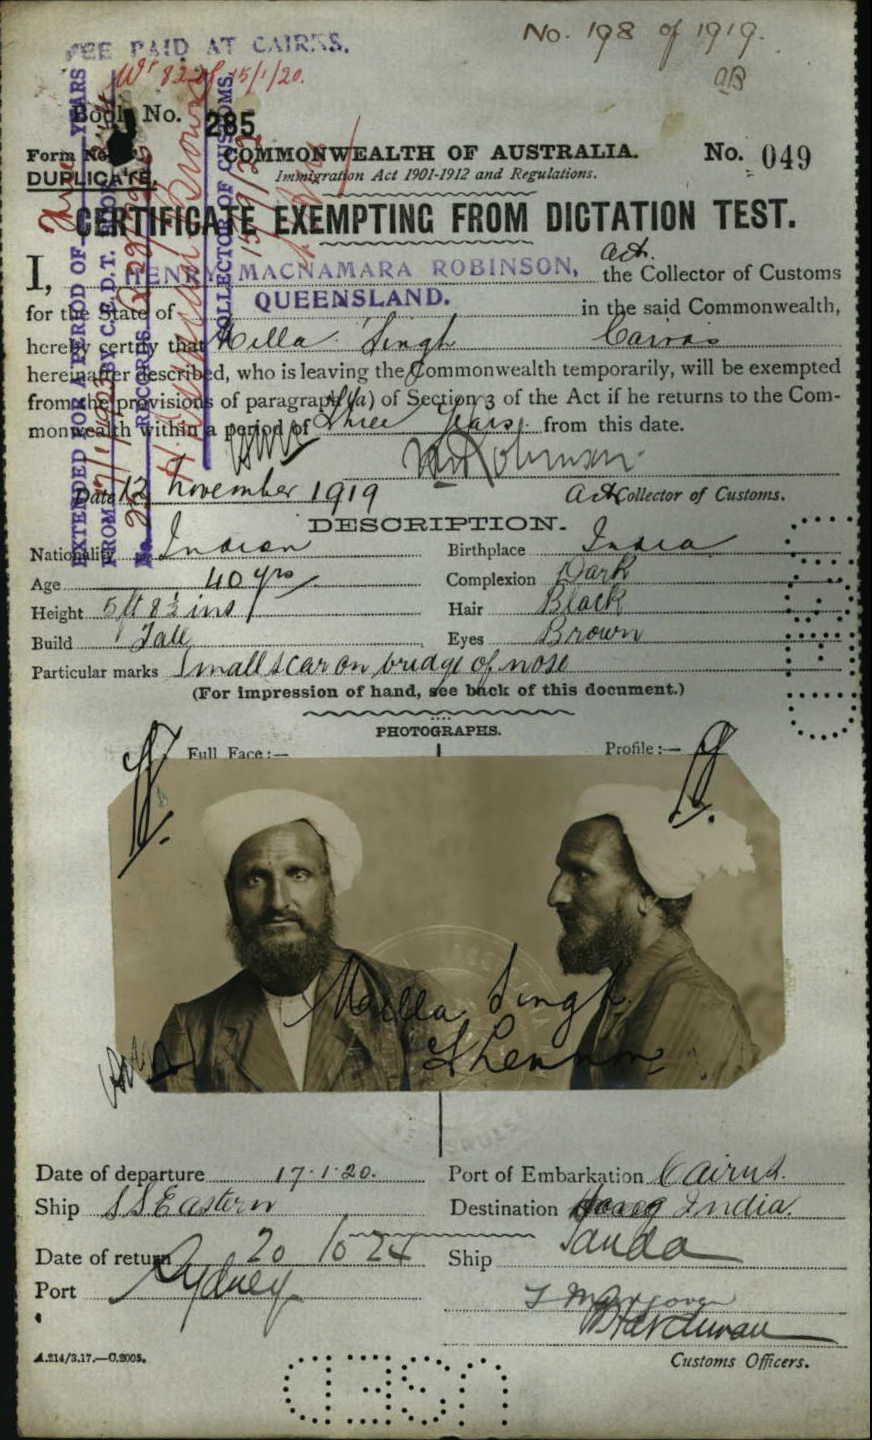 No. 198 of 1919.
FEE PAID AT CAIRNS.
15/1/20.
Book No. 285
Form No.
DUPLICATE.
COMMONWEALTH OF AUSTRALIA.
No. 049
Immigration Act 1901-1912 and Regulations.
CERTIFICATE EXEMPTING FROM DICTATION TEST.
I, HENRY MACNAMARA ROBINSON, Act. the Collector of Customs
for the State of QUEENSLAND. in the said Commonwealth,
hereby certify that Milla Singh Cairns
hereinafter described, who is leaving the Commonwealth temporarily, will be exempted
from the provisions of paragraph (a) of Section 3 of the Act if he returns to the Com-
monwealth within a period of Three Years from this date.
Date 12 November 1919
Act Collector of Customs.
EXTENDED FOR A PERIOD OF YEARS
FROM
C.E.D.T. BOOK
RECORDS
No.
COLLECTOR OF CUSTOMS.
DESCRIPTION.
Nationality Indian
Birthplace India
Age 40 yrs
Complexion Dark
Height 5 ft 8½ ins
Hair Black
Build Tall
Eyes Brown
Particular marks Small scar on bridge of nose
(For impression of hand, see back of this document.)
PHOTOGRAPHS.
Full Face:—
Profile:—
Milla Singh
Date of departure 17.1.20.
Port of Embarkation Cairns.
Ship SS Eastern
Destination India.
Date of return 20 10 24
Ship Tanda
Port Sydney
A.214/3.17.—C.2005.
Customs Officers.